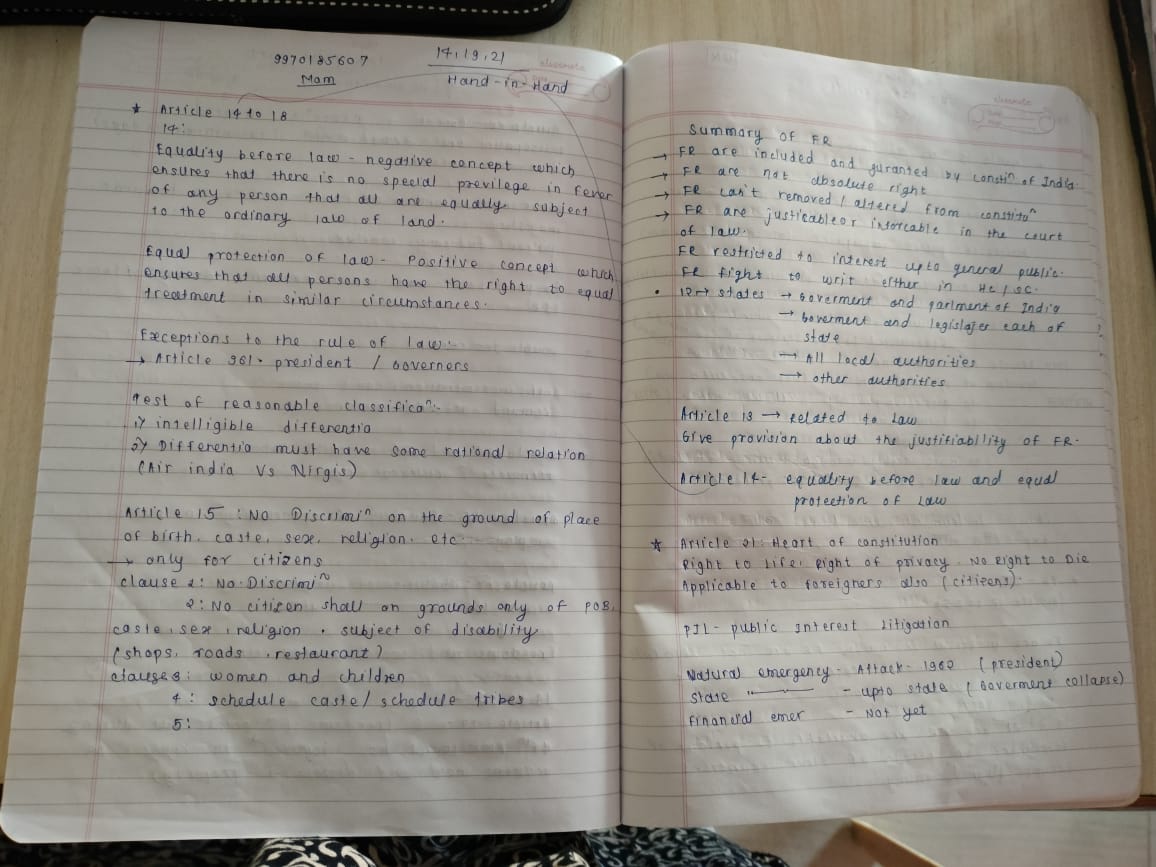 9970185607
Mam
14,19,21
Hand-in-Hand
classmate
★ Article 14 to 18
14:
Equality before law - negative concept which
ensures that there is no special previlege in fever
of any person that all are equally subject
to the ordinary law of land.
Equal protection of law - Positive concept which
ensures that all persons have the right to equal
treatment in similar circumstances.
Exceptions to the rule of law:-
→ Article 361 · president / Governers
Test of reasonable classificaⁿ:-
1) intelligible differentia
2) Differentia must have some rational relation
(Air india Vs Nirgis)
Article 15 : No Discrimiⁿ on the ground of place
of birth, caste, sex, religion. etc
→ only for citizens
clause 1: No Discrimiⁿ
2: No citizen shall on grounds only of POB,
caste, sex, religion . subject of disability
(shops, roads, restaurant)
clause 3: women and children
4: schedule caste/ schedule tribes
5:
classmate
Summary of FR
→ FR are included and guranted by constiⁿ of India.
→ FR are not absolute right
→ FR can't removed / altered from constituⁿ
→ FR are justicable or inforcable in the court
of law.
FR restricted to interest upto general public.
FR right to writ either in HC/SC.
• 12 → states → Goverment and parlment of India
→ Goverment and legislater each of
state
→ All local authorities
→ other authorities
Article 13 → Related to Law
Give provision about the justifiability of FR.
Article 14- equality before law and equal
protection of law
★ Article 21: Heart of constitution
Right to Life, Right of privacy No Right to Die
Applicable to foreigners also (citizens).
PIL - public Interest Litigation
Natural emergency - Attack - 1962 (president)
State —〃— - upto state (Goverment collapse)
Financial emer - Not yet